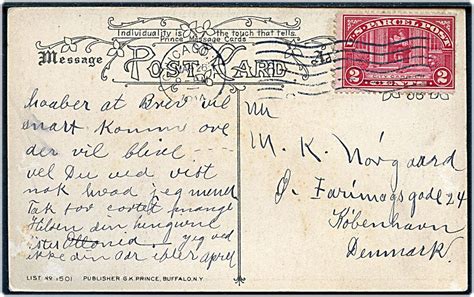 Individuality is the touch that tells.
Prince Message Cards
Message
POST CARD
CHICAGO
U.S. PARCEL POST
2 2
CENTS
haaber at Brev vil
snart komme ove
der vil blive
vel Du ved vist
nok hvad jeg mend
Tak for cortet mange
Hilsen din hengivne
Søster Ottonia jeg ved
ikke din adr april
M. K. Nörgaard
Ö. Farimagsgade 24
København
Denmark.
LIST NO. 1501 PUBLISHER G.K. PRINCE, BUFFALO, N.Y.